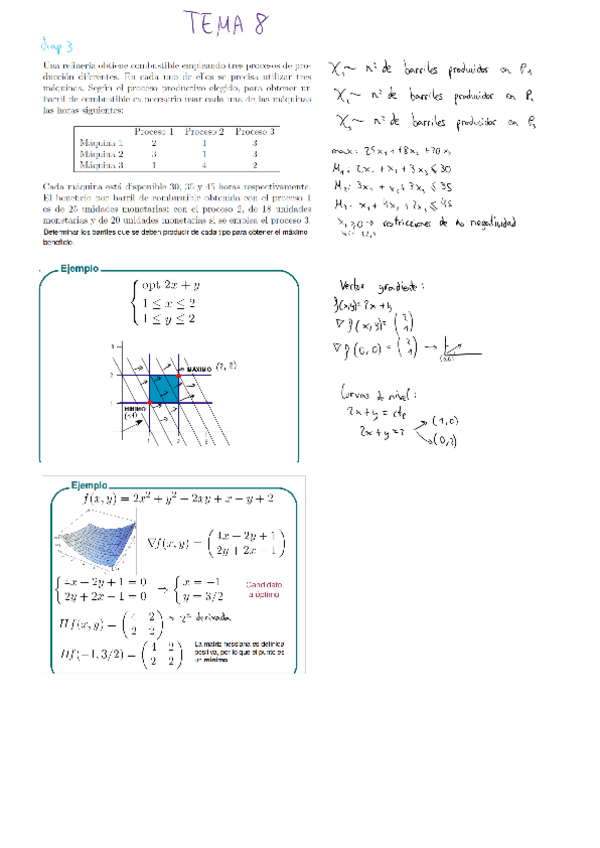 TEMA 8
diap 3
Una refinería obtiene combustible empleando tres procesos de pro-
ducción diferentes. En cada uno de ellos se precisa utilizar tres
máquinas. Según el proceso productivo elegido, para obtener un
barril de combustible es necesario usar cada una de las máquinas
las horas siguientes:
Proceso 1 Proceso 2 Proceso 3
Máquina 1 2 1 3
Máquina 2 3 1 3
Máquina 3 1 4 2
Cada máquina está disponible 30, 35 y 45 horas respectivamente.
El beneficio por barril de combustible obtenido con el proceso 1
es de 25 unidades monetarias; con el proceso 2, de 18 unidades
monetarias y de 20 unidades monetarias si se emplea el proceso 3.
Determinar los barriles que se deben producir de cada tipo para obtener el máximo
beneficio.
X₁ ~ nº de barriles producidos en P₁
X₂ ~ nº de barriles producidos en P₂
X₃ ~ nº de barriles producidos en P₃
max: 25x₁+18x₂+20x₃
M₁: 2x₁ + x₂ + 3x₃ ≤ 30
M₂: 3x₁ + x₂ + 3x₃ ≤ 35
M₃: x₁ + 4x₂ + 2x₃ ≤ 45
restricciones de no negatividad
Ejemplo
opt 2x + y
1 ≤ x ≤ 2
1 ≤ y ≤ 2
MÁXIMO (2, 2)
MÍNIMO
(1,1)
Vector gradiente:
f(x,y)=2x+y
∇f(x,y)= (2 1)
∇f(0,0) = (2 1) →
Curvas de nivel:
2x+y = cte
2x+y=2
(1,0)
(0,2)
Ejemplo
f(x, y) = 2x² + y² − 2xy + x − y + 2
∇f(x, y) = (4x − 2y + 1
2y + 2x − 1)
4x − 2y + 1 = 0
2y + 2x − 1 = 0
⇒ x = −1
y = 3/2
Candidato
a óptimo
Hf(x, y) = (4 2
2 2) → 2ª derivada
Hf(−1, 3/2) = (4 2
2 2)
La matriz hessiana es definida
positiva, por lo que el punto es
un mínimo